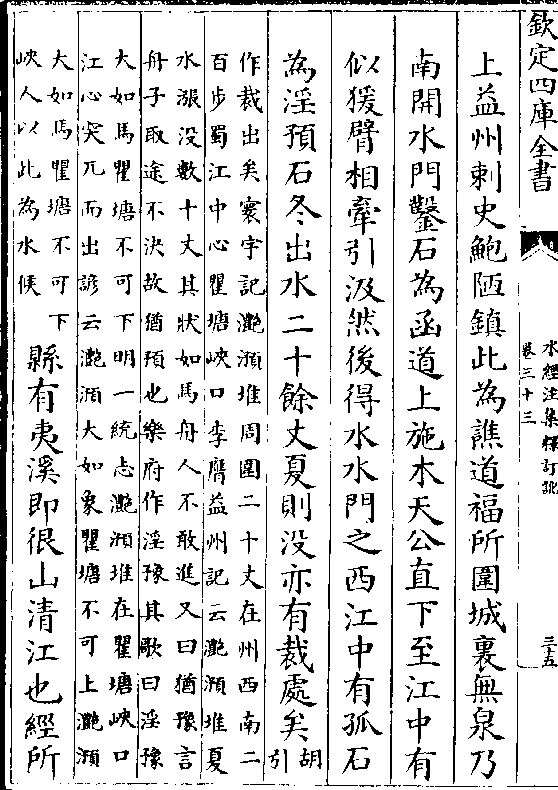 欽定四庫全書
水經注集釋訂訛
卷三十三
三十五
上益州刺史鮑陋鎮此為譙道福所圍城裏無泉乃
南開水門鑿石為函道上施木天公直下至江中有
似猨臂相牽引汲然後得水水門之西江中有孤石
為淫預石冬出水二十餘丈夏則没亦有裁處矣
胡
引
作裁出矣寰宇記灔澦堆周圍二十丈在州西南二
百步蜀江中心瞿塘峽口李膺益州記云灔澦堆夏
水漲没數十丈其狀如馬舟人不敢進又曰猶豫言
舟子取途不決故猶預也樂府作淫豫其歌曰淫豫
大如馬瞿塘不可下明一統志灔澦堆在瞿塘峽口
江心突兀而出諺云灔澦大如象瞿塘不可上灔澦
大如馬瞿塘不可下
峽人以此為水候
縣有夷溪即佷山清江也經所